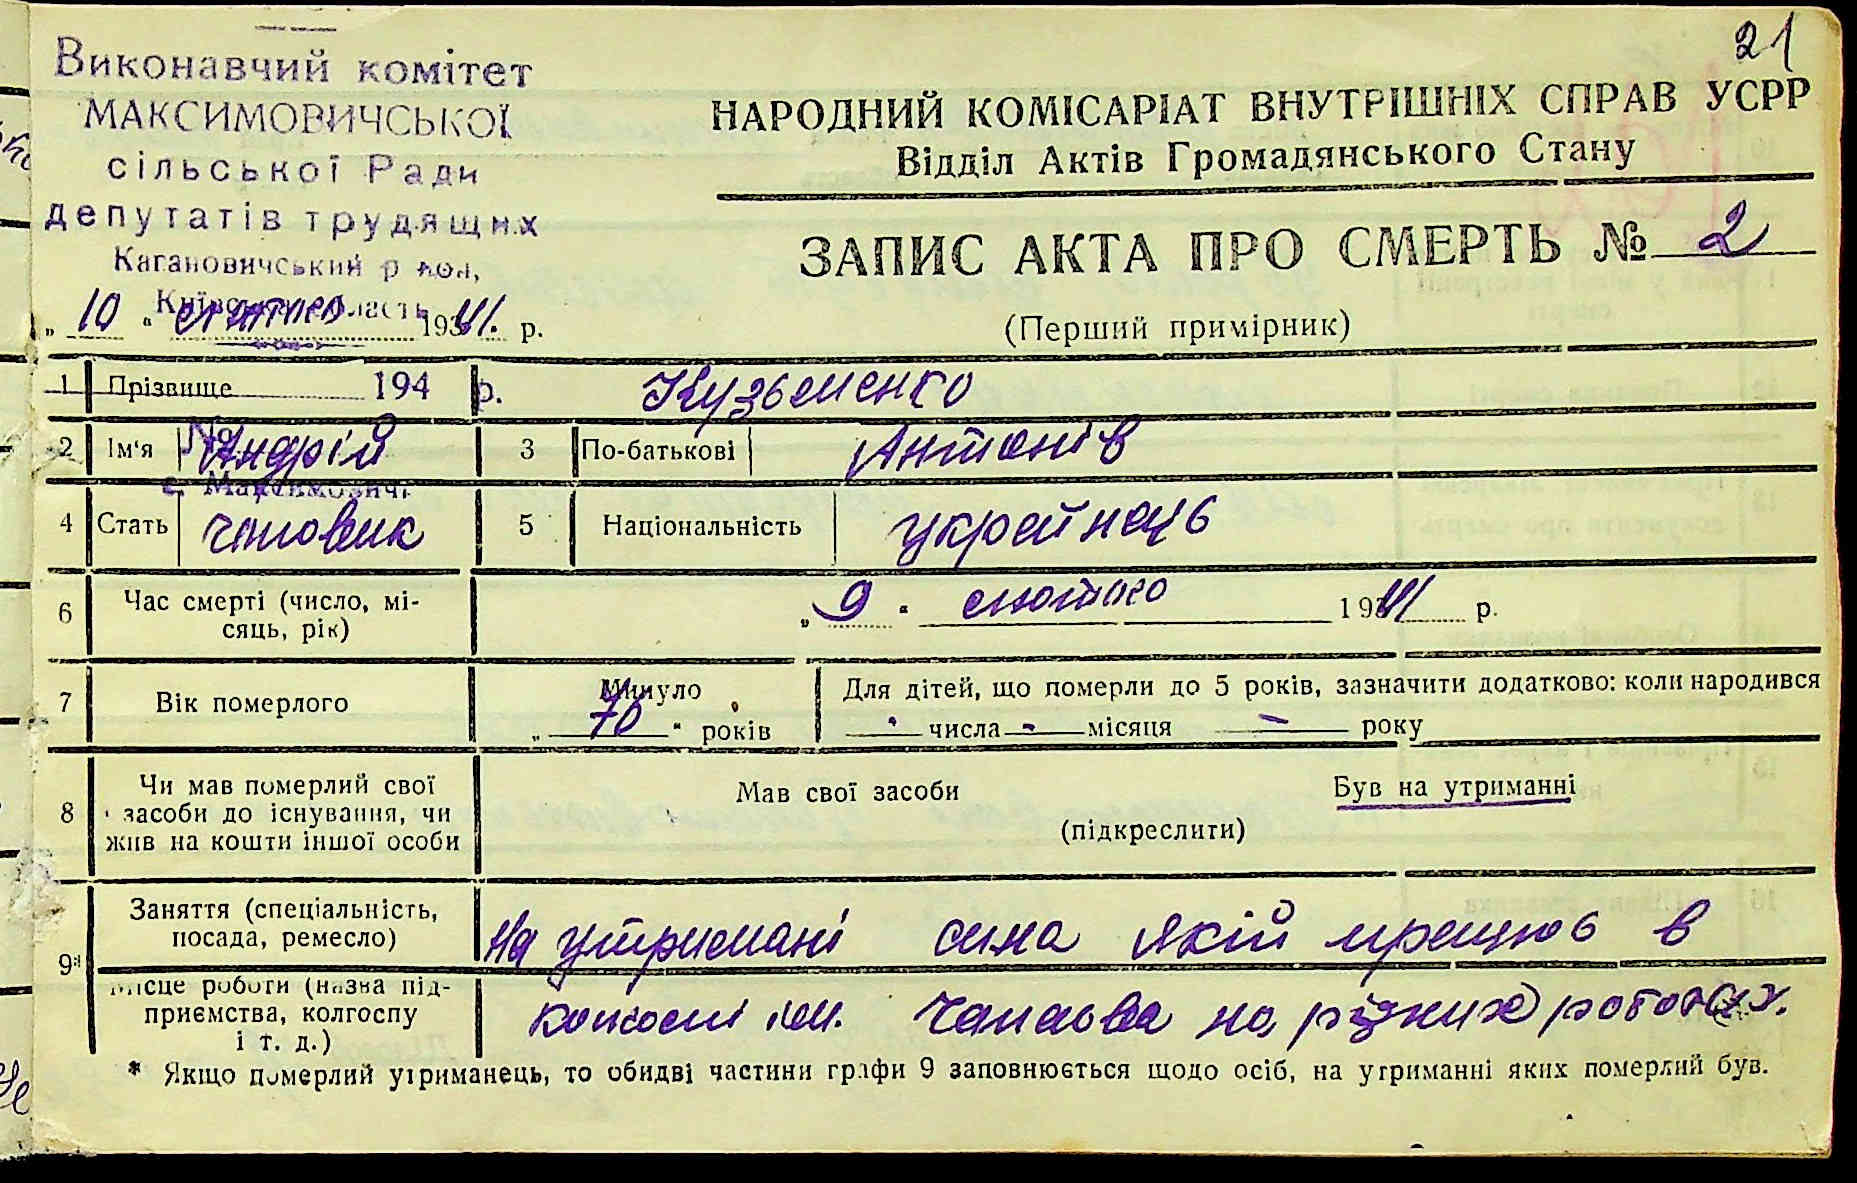 21
Виконавчий комітет
МАКСИМОВИЧСЬКОЇ
сільської Ради
депутатів трудящих
Кагановичський район,
Київська область
НАРОДНИЙ КОМІСАРІАТ ВНУТРІШНІХ СПРАВ УСРР
Відділ Актів Громадянського Стану
ЗАПИС АКТА ПРО СМЕРТЬ № 2
(Перший примірник)
„ 10 “ лютого 1941. р.
1 Прізвище 194 р. Кузьменко
№
2 Ім'я Андрій 3 По-батькові Антонів
с. Максимовичі
4 Стать чоловик 5 Національність украйнець
6 Час смерті (число, мі-
сяць, рік) „ 9 “ лютого 1941 р.
7 Вік померлого Минуло
„ 70 “ років
Для дітей, що померли до 5 років, зазначити додатково: коли народився
- числа - місяця - року
8 Чи мав померлий свої
засоби до існування, чи
жив на кошти іншої особи
Мав свої засоби Був на утриманні
(підкреслити)
9* Заняття (спеціальність,
посада, ремесло)
На утримані сина якій працює в
Місце роботи (назва під-
приємства, колгоспу
і т. д.)
колгоспі ім. Чапаєва на різних роботах.
* Якщо померлий утриманець, то обидві частини графи 9 заповнюється щодо осіб, на утриманні яких померлий був.